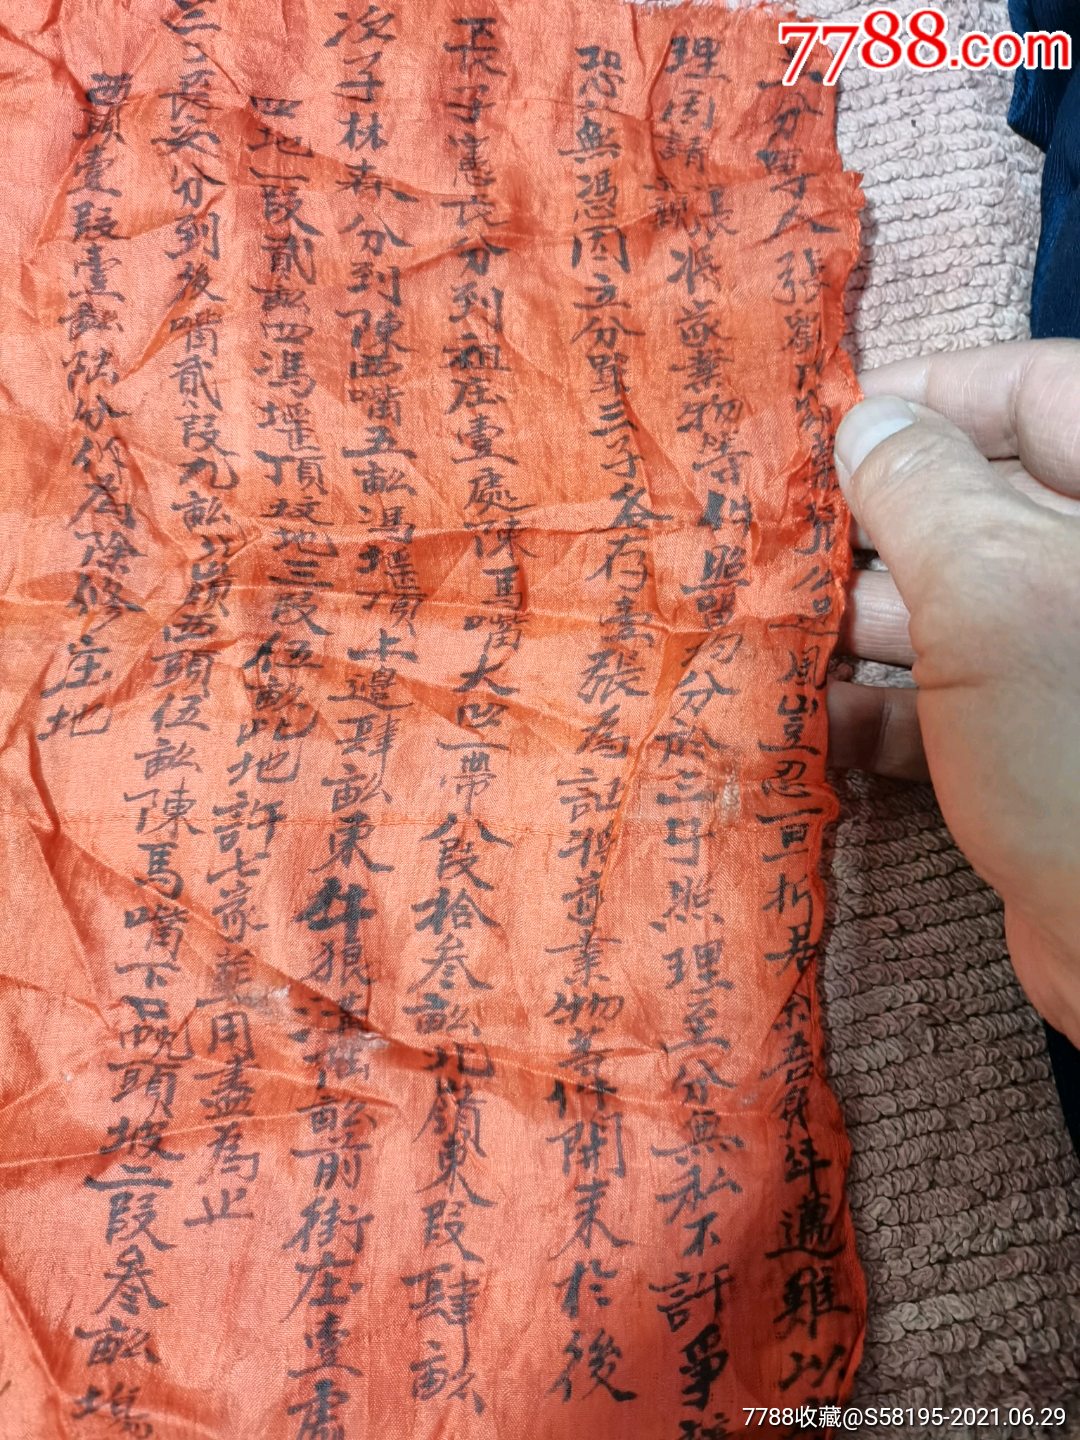 7788.com
立分單人張 公 風豈忍一旦折居余吾身年邁難以
理因請親張將家業物等件照單均分於三子照理至分無私不許爭
恐無馮因立分單三子各存壹張為証將產業物等件開来於後
長子憲長分到祖庄壹處陳馬嘴大凹一帶八段拾叁畝北嶺東段肆畝
次子林森分到陳西嘴五畝馮堰頂上邊肆畝東 狼 畝前街庄壹處
四地一段貳畝四馮堰頂坟地三段伍畝此地許七家葬用盡為止
三子長 分到後嘴貳段九畝 嶺西頭伍畝陳馬嘴下 頭坡二段叁畝
西頭壹段壹畝陆分作為除修庄地
7788收藏@S58195-2021.06.29